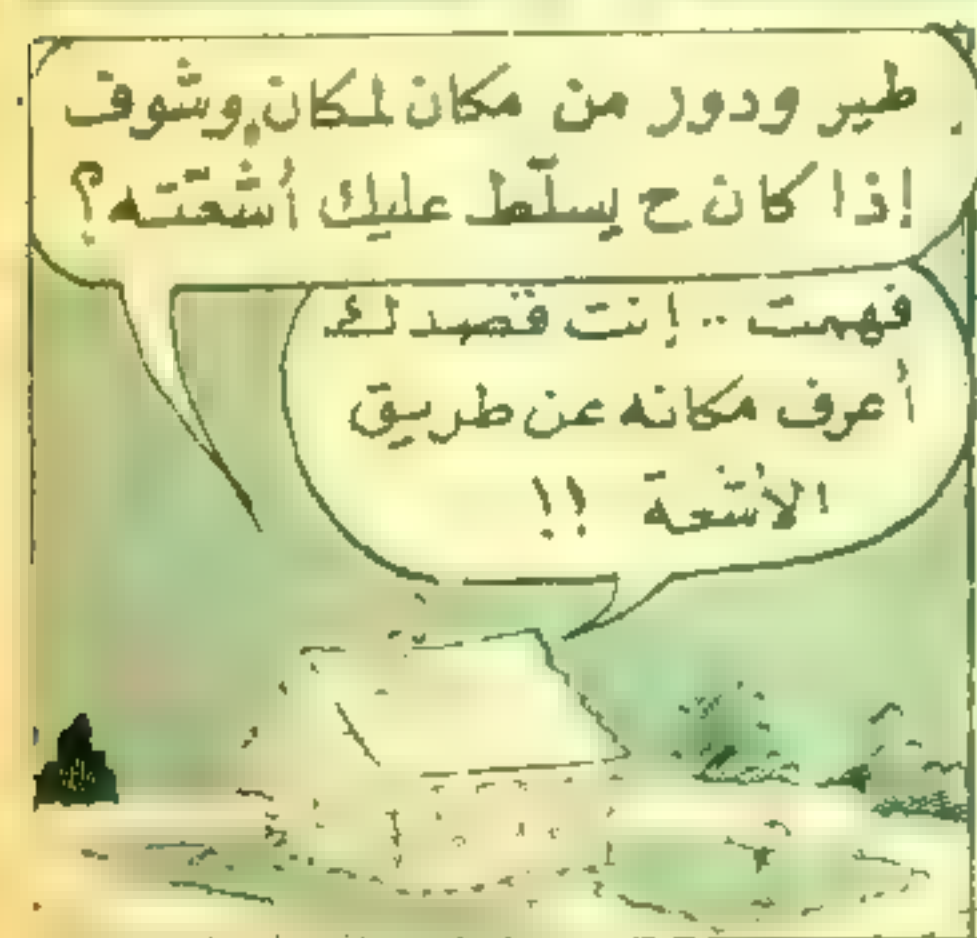 طير ودور من مكان لمكان, وشوف
إذا كان ح يسلّط عليك أشعّته؟
فهمت .. إنت قصدك
أعرف مكانه عن طريق
الأشعة !!